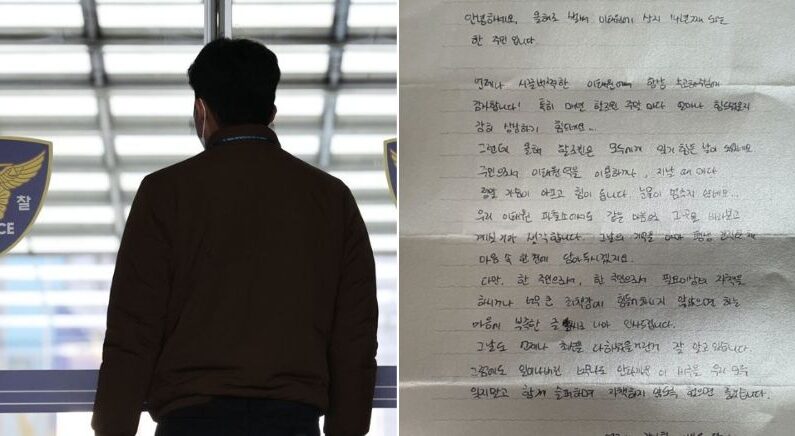 찰
CE
안녕하세요, 올해로 벌써 이태원에 산지 14년째 되는
한 주민입니다.
언제나 시끌벅적한 이태원에 항상 노고해주심에
감사합니다! 특히 매년 할로윈 주말마다 얼마나 힘드실지
감히 상상하기 힘드네요...
그런데 올해 할로윈은 모두에게 잊기 힘든 날이 되었네요.
주민으로서 이태원역을 이용하거나, 지날 때마다
정말 가슴이 아프고 힘이 듭니다. 눈물이 멈추지 않네요...
우리 이태원 파출소에서도 같은 마음으로 그곳을 바라보고
계실거라 생각합니다. 그날의 기억을 아마 평생
마음 속 한 켠에 담아두시겠지요.
다만, 한 주민으로서, 한 국민으로서 필요이상의 자책을
하시거나 너무 큰 죄책감에 힘들어하시지 않았으면 하는
마음에 부족한 글 로나마 인사드립니다.
그날도 언제나 최선을 다하셨을거란걸 잘 알고 있습니다.
그럼에도 일어나버린 너무나도 안타까운 이 비극을 우리 모두
잊지말고 함께 슬퍼하며 자책하지 않도록 했으면 좋겠습니다.